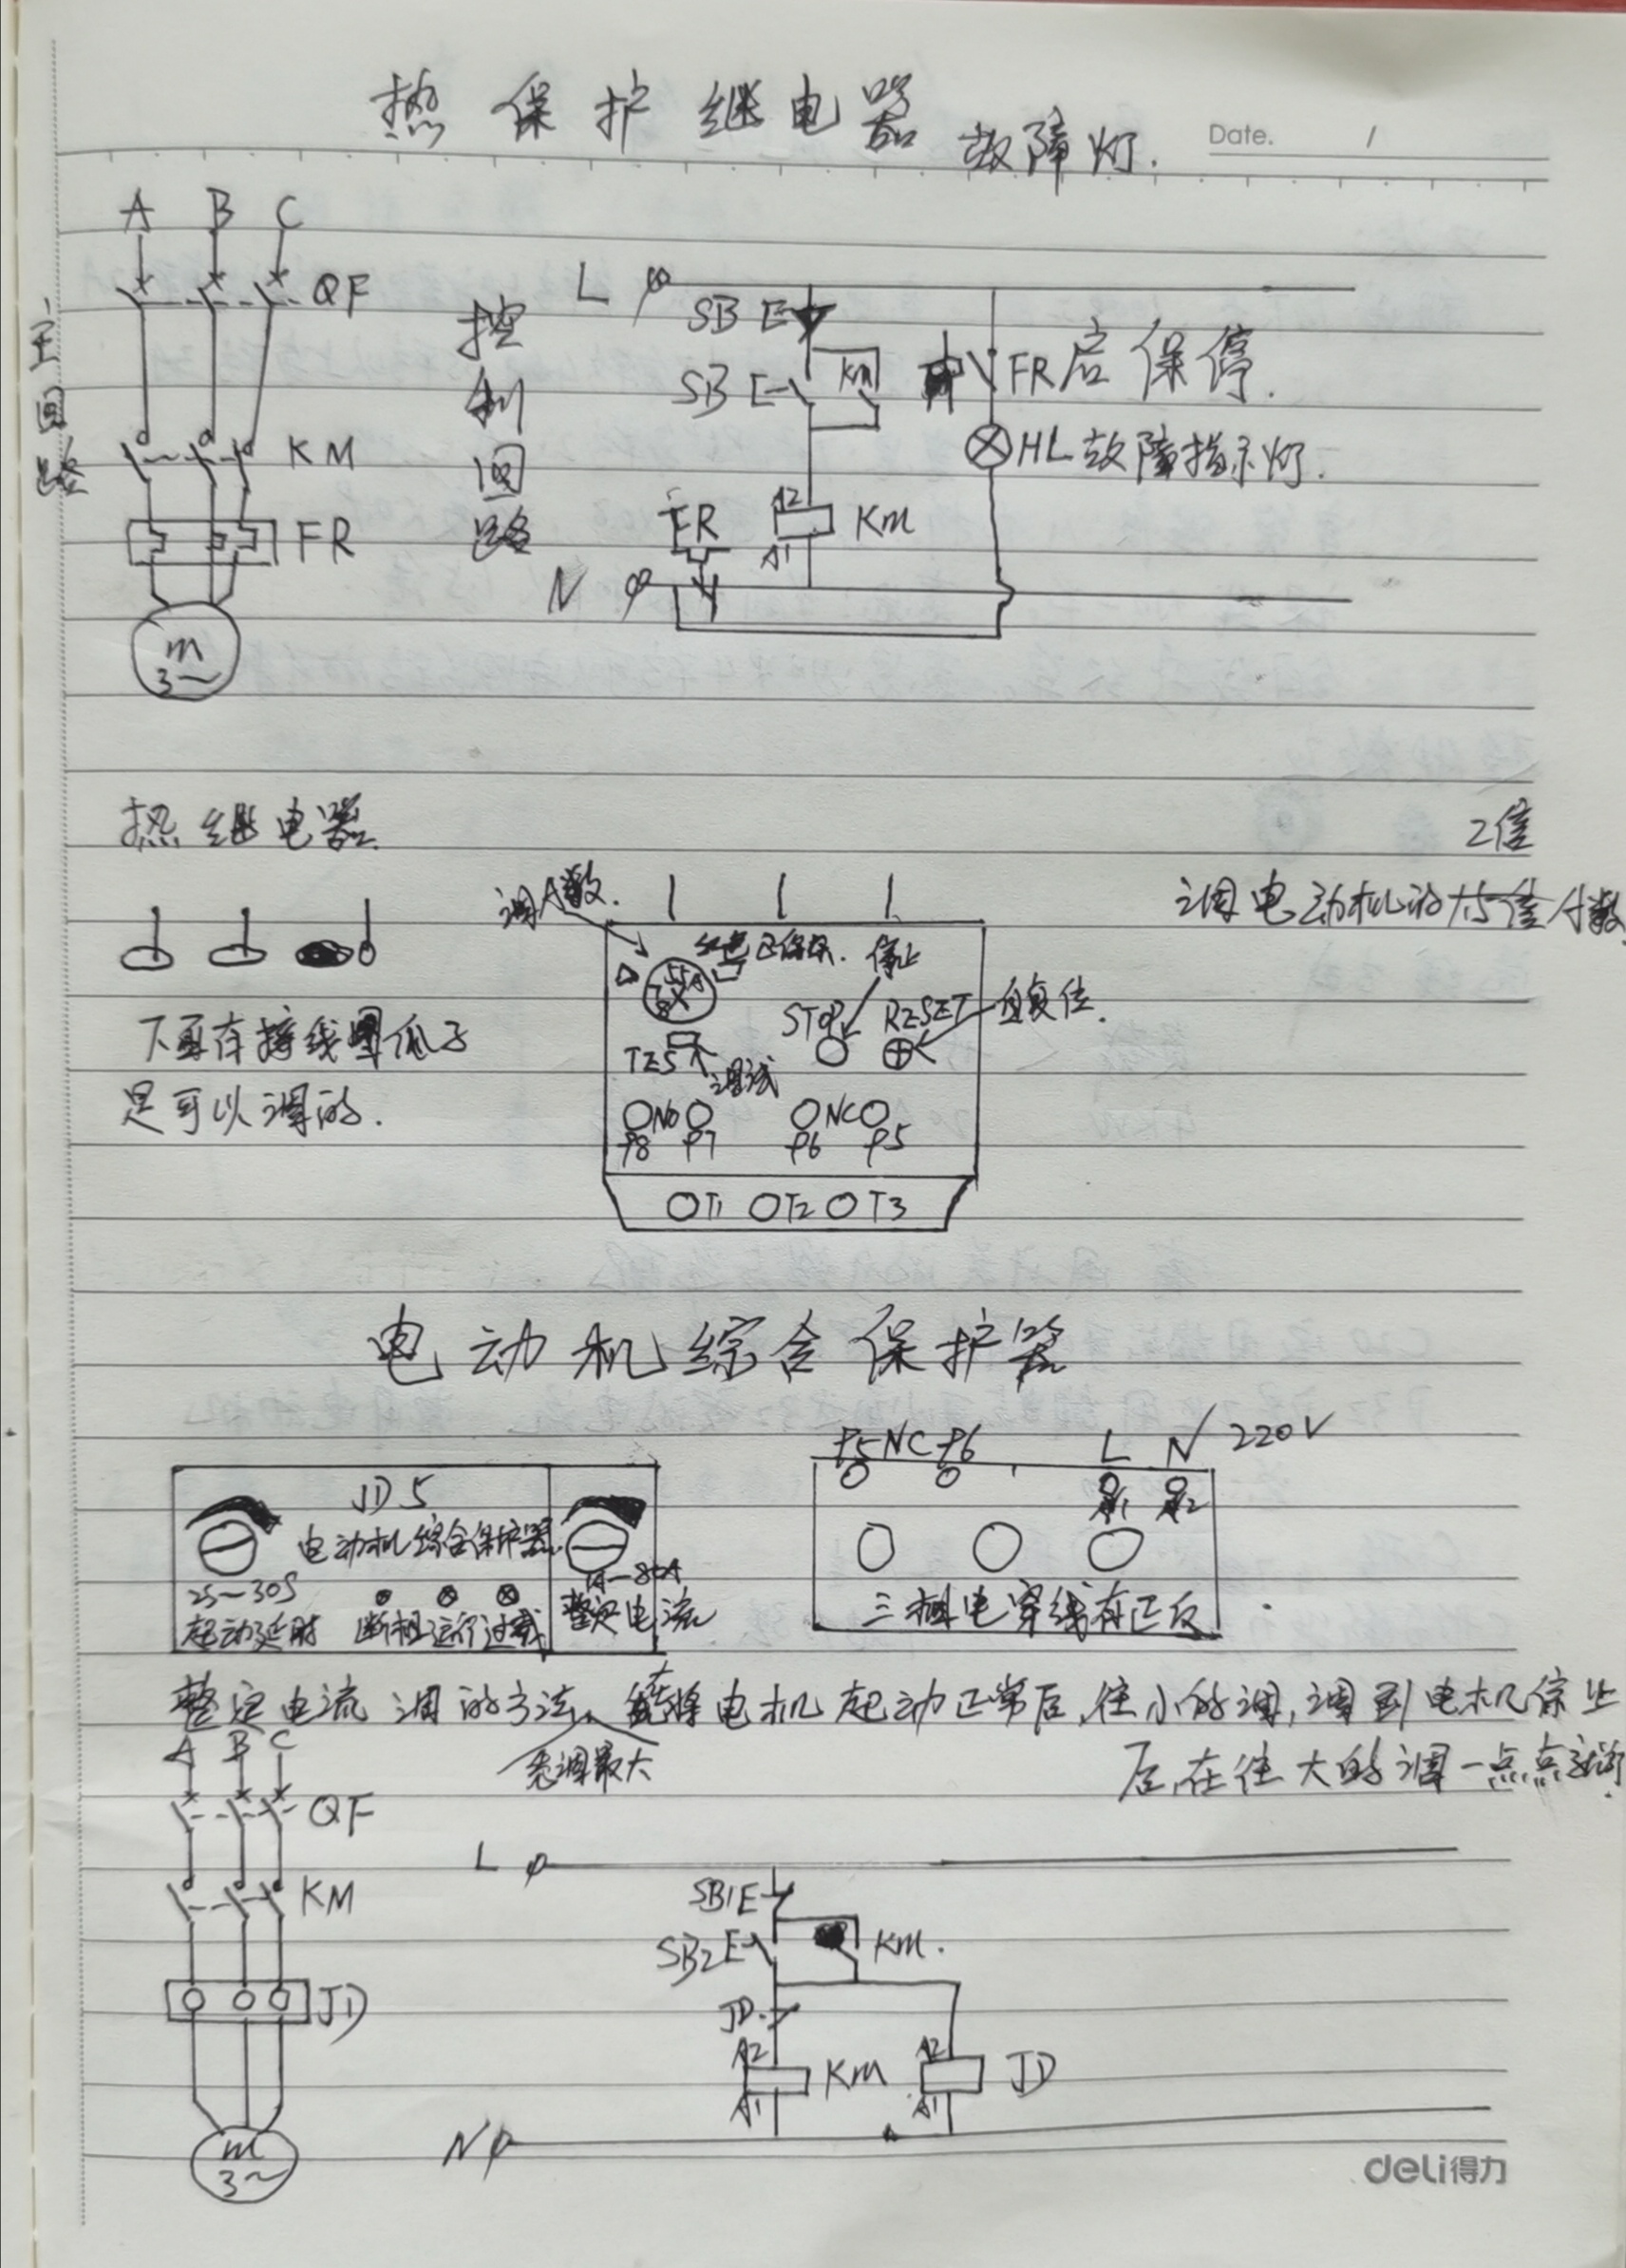 热保护继电器 故障灯.
Date. /
A B C
QF
主回路
KM
FR
m
3~
控制回路
L
SB E
SB E
Km
FR 启保停.
HL故障指示灯.
FR
A2
Km
A1
N
热继电器
2倍
调电动机的1.5倍A数
下面有接线图瓜子
是可以调的.
调A数.
红色已保护. 停止
STOP RESET 自复位.
TES 调试
NO NC
f8 f7 f6 f5
T1 T2 T3
电动机综合保护器
f5 NC f6 L N 220V
A1 A2
JD5
电动机综合保护器
2S~30S
起动延时 断相 运行 过载
1A~80A
整定电流
三相电穿线有正反
整定电流调的方法、先将电机起动正常后,往小的调,调到电机停止
先调最大
后,在往大的调一点点就行.
A B C
QF
KM
JD
m
3~
L
SB1E
SB2E
Km.
JD
A2
Km
A1
A2
JD
A1
N
deli得力